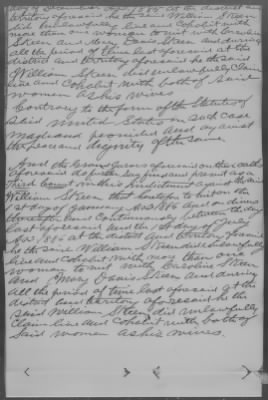 day of December A.D. 1885 at the district and
territory aforesaid he the said William Skeen
did unlawfully live and Cohabit with
more than one woman to wit with Caroline
Skeen and Mary Davis Skeen and during
all the period of time last aforesaid at the
district and territory aforesaid he the said
William Skeen did unlawfully Claim
live and Cohabit with both of said
women as his wives
Contrary to the form of the Statutes of
said United States in such case
made and provided and against
the peace and dignity of the same.
And the Grand Jurors aforesaid on their oaths
aforesaid do further say find and present as a
Third Count in this indictment against
William Skeen that heretofore to wit on the
day of January A.D. 1885 and on divers
days thereafter and Continuously between the day
last aforesaid and the 1st day of July
A.D. 1885 at the district and territory aforesaid
he the said William Skeen did unlawfully
live and Cohabit with more than one
woman to wit with Caroline Skeen
and Mary Davis Skeen and during
all the period of time last aforesaid at the
district and territory aforesaid he the
said William Skeen did unlawfully
Claim live and Cohabit with both of
said women as his wives.